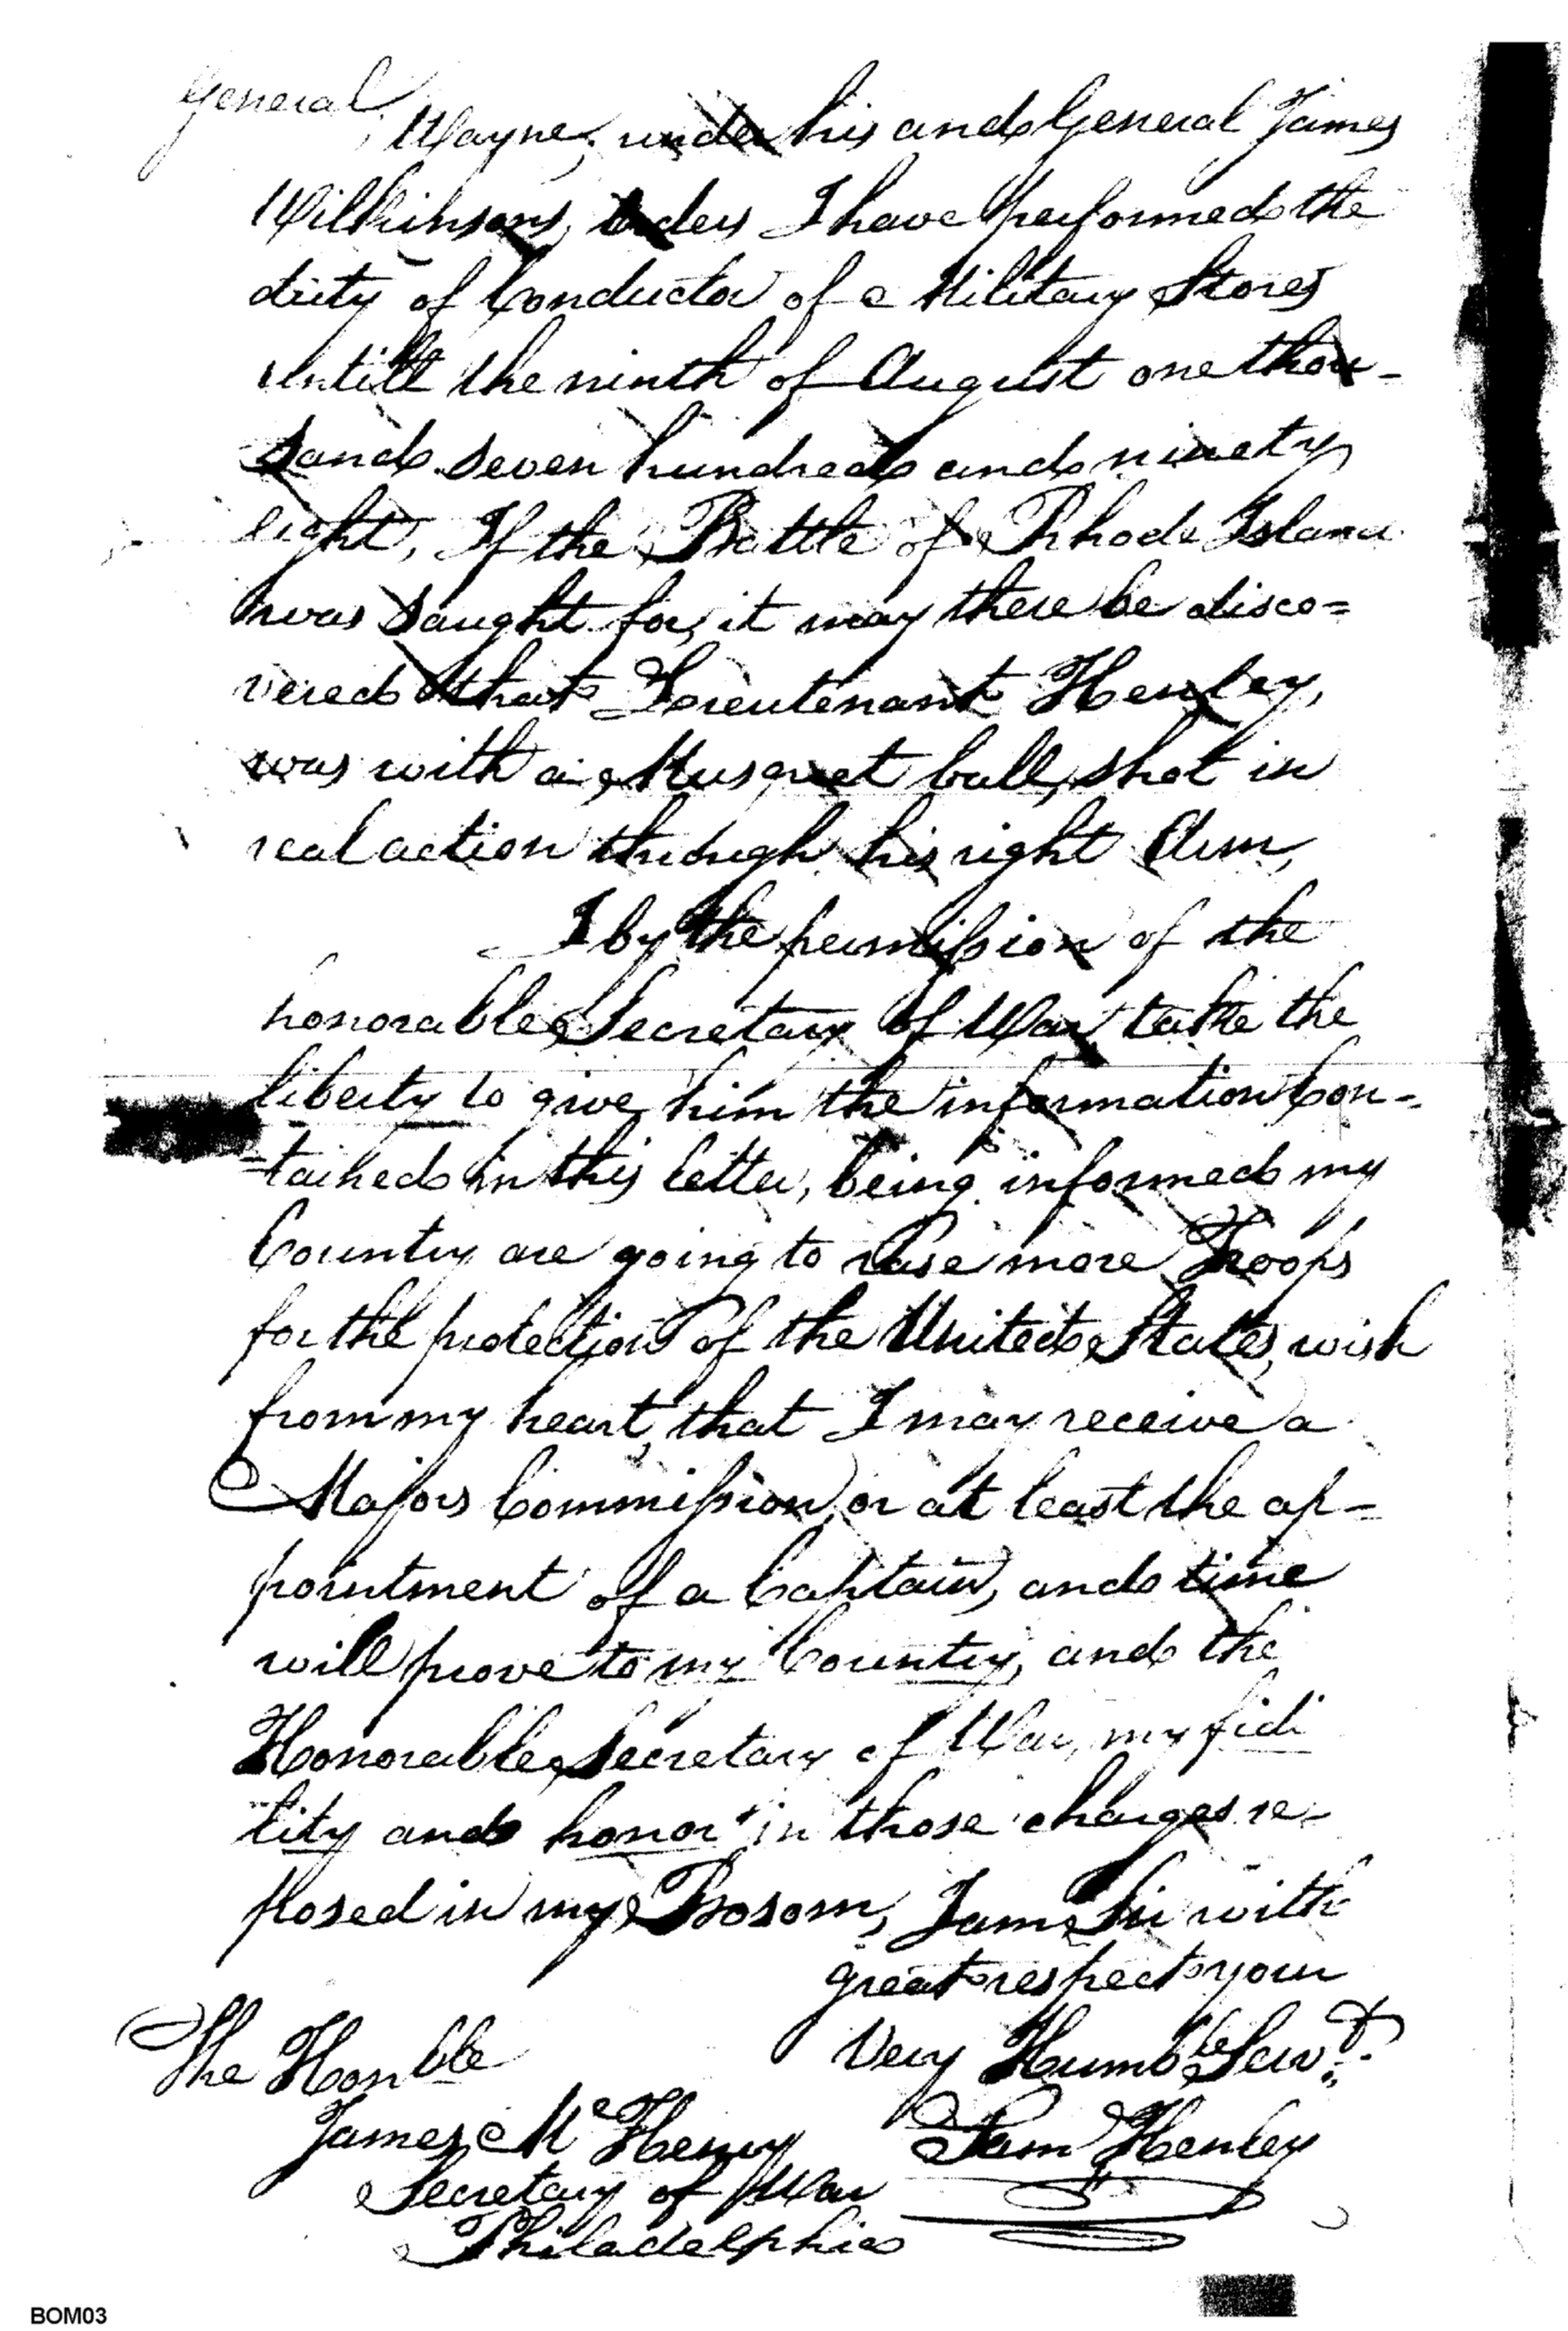 General
Wayne, under his and General James
Wilkinsons, orders I have performed the
duty of Conductor of Military Stores
untill the ninth of August one thou-
sand seven hundred and ninety
eight, If the Battle of Rhode Island
was Saught for, it may there be disco=
vered that Lieutenant Henley,
was with a Musquet ball, shot in
real action through his right Arm,
I by the permission of the
honorable Secretary of War, take the
liberty to give him the information Con-
=tained in this letter, being informed my
Country are going to raise more Troops
for the protection of the United States, wish
from my heart, that I may receive a
Majors Commission, or at least the ap=
pointment of a Captain, and time
will prove to my Country, and the
Honorable Secretary of War, my fidi
lity and honor in those charges re-
posed in my Bosom, I am Sir with
great respect your
Very Humble Servt.
The Honble
James McHenry Sam Henley
Secretary of War
Philadelphia
BOM03